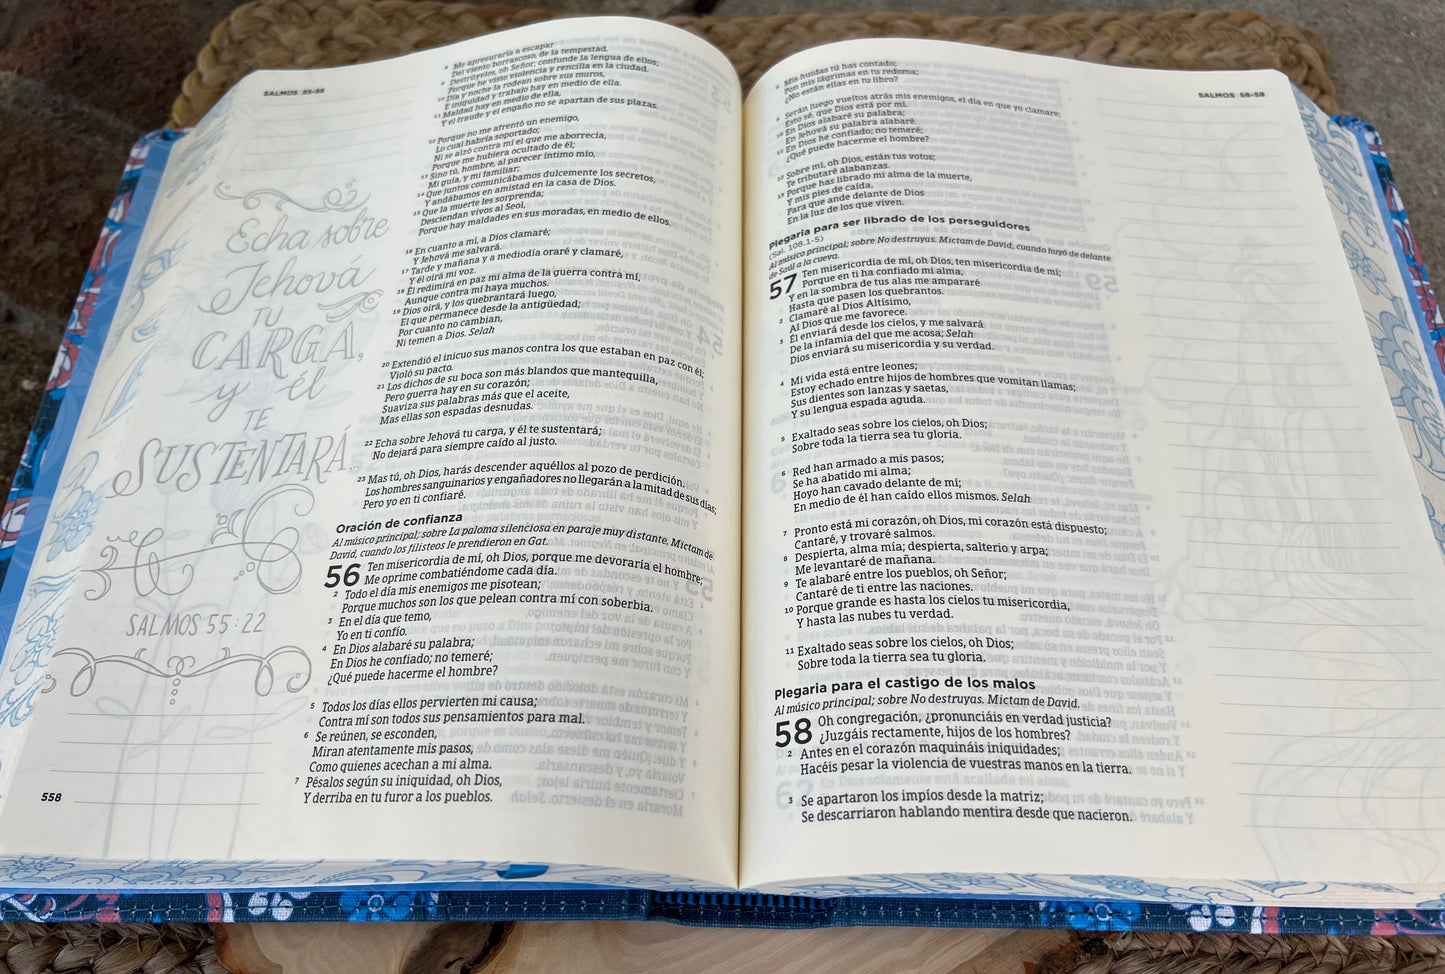 SALMOS 55-58
Echa sobre
Jehova
TU
CARGA,
y él
TE
SUSTENTARÁ...
SALMOS 55:22
558
Me apresuraría a escapar
Del viento borrascoso, de la tempestad.
9 Destrúyelos, oh Señor; confunde la lengua de ellos;
Porque he visto violencia y rencilla en la ciudad.
10 Día y noche la rodean sobre sus muros,
E iniquidad y trabajo hay en medio de ella.
11 Maldad hay en medio de ella,
Y el fraude y el engaño no se apartan de sus plazas.
12 Porque no me afrentó un enemigo,
Lo cual habría soportado;
Ni se alzó contra mí el que me aborrecía,
Porque me hubiera ocultado de él;
13 Sino tú, hombre, al parecer íntimo mío,
Mi guía, y mi familiar;
14 Que juntos comunicábamos dulcemente los secretos,
Y andábamos en amistad en la casa de Dios.
15 Que la muerte les sorprenda;
Desciendan vivos al Seol,
Porque hay maldades en sus moradas, en medio de ellos.
16 En cuanto a mí, a Dios clamaré;
Y Jehová me salvará.
17 Tarde y mañana y a mediodía oraré y clamaré,
Y él oirá mi voz.
18 Él redimirá en paz mi alma de la guerra contra mí,
Aunque contra mí haya muchos.
19 Dios oirá, y los quebrantará luego,
El que permanece desde la antigüedad;
Por cuanto no cambian,
Ni temen a Dios. Selah
20 Extendió el inicuo sus manos contra los que estaban en paz con él;
Violó su pacto.
21 Los dichos de su boca son más blandos que mantequilla,
Pero guerra hay en su corazón;
Suaviza sus palabras más que el aceite,
Mas ellas son espadas desnudas.
22 Echa sobre Jehová tu carga, y él te sustentará;
No dejará para siempre caído al justo.
23 Mas tú, oh Dios, harás descender aquéllos al pozo de perdición.
Los hombres sanguinarios y engañadores no llegarán a la mitad de sus días;
Pero yo en ti confiaré.
Oración de confianza
Al músico principal; sobre La paloma silenciosa en paraje muy distante. Mictam de
David, cuando los filisteos le prendieron en Gat.
56 Ten misericordia de mí, oh Dios, porque me devoraría el hombre;
Me oprime combatiéndome cada día.
2 Todo el día mis enemigos me pisotean;
Porque muchos son los que pelean contra mí con soberbia.
3 En el día que temo,
Yo en ti confío.
4 En Dios alabaré su palabra;
En Dios he confiado; no temeré;
¿Qué puede hacerme el hombre?
5 Todos los días ellos pervierten mi causa;
Contra mí son todos sus pensamientos para mal.
6 Se reúnen, se esconden,
Miran atentamente mis pasos,
Como quienes acechan a mi alma.
7 Pésalos según su iniquidad, oh Dios,
Y derriba en tu furor a los pueblos.
SALMOS 56-58
8 Mis huidas tú has contado;
Pon mis lágrimas en tu redoma;
¿No están ellas en tu libro?
9 Serán luego vueltos atrás mis enemigos, el día en que yo clamare;
Esto sé, que Dios está por mí.
10 En Dios alabaré su palabra;
En Jehová su palabra alabaré.
11 En Dios he confiado; no temeré;
¿Qué puede hacerme el hombre?
12 Sobre mí, oh Dios, están tus votos;
Te tributaré alabanzas.
13 Porque has librado mi alma de la muerte,
Y mis pies de caída,
Para que ande delante de Dios
En la luz de los que viven.
Plegaria para ser librado de los perseguidores
(Sal. 108.1-5)
Al músico principal; sobre No destruyas. Mictam de David, cuando huyó de delante
de Saúl a la cueva.
57 Ten misericordia de mí, oh Dios, ten misericordia de mí;
Porque en ti ha confiado mi alma,
Y en la sombra de tus alas me ampararé
Hasta que pasen los quebrantos.
2 Clamaré al Dios Altísimo,
Al Dios que me favorece.
3 Él enviará desde los cielos, y me salvará
De la infamia del que me acosa; Selah
Dios enviará su misericordia y su verdad.
4 Mi vida está entre leones;
Estoy echado entre hijos de hombres que vomitan llamas;
Sus dientes son lanzas y saetas,
Y su lengua espada aguda.
5 Exaltado seas sobre los cielos, oh Dios;
Sobre toda la tierra sea tu gloria.
6 Red han armado a mis pasos;
Se ha abatido mi alma;
Hoyo han cavado delante de mí;
En medio de él han caído ellos mismos. Selah
7 Pronto está mi corazón, oh Dios, mi corazón está dispuesto;
Cantaré, y trovaré salmos.
8 Despierta, alma mía; despierta, salterio y arpa;
Me levantaré de mañana.
9 Te alabaré entre los pueblos, oh Señor;
Cantaré de ti entre las naciones.
10 Porque grande es hasta los cielos tu misericordia,
Y hasta las nubes tu verdad.
11 Exaltado seas sobre los cielos, oh Dios;
Sobre toda la tierra sea tu gloria.
Plegaria para el castigo de los malos
Al músico principal; sobre No destruyas. Mictam de David.
58 Oh congregación, ¿pronunciáis en verdad justicia?
¿Juzgáis rectamente, hijos de los hombres?
2 Antes en el corazón maquináis iniquidades;
Hacéis pesar la violencia de vuestras manos en la tierra.
3 Se apartaron los impíos desde la matriz;
Se descarriaron hablando mentira desde que nacieron.